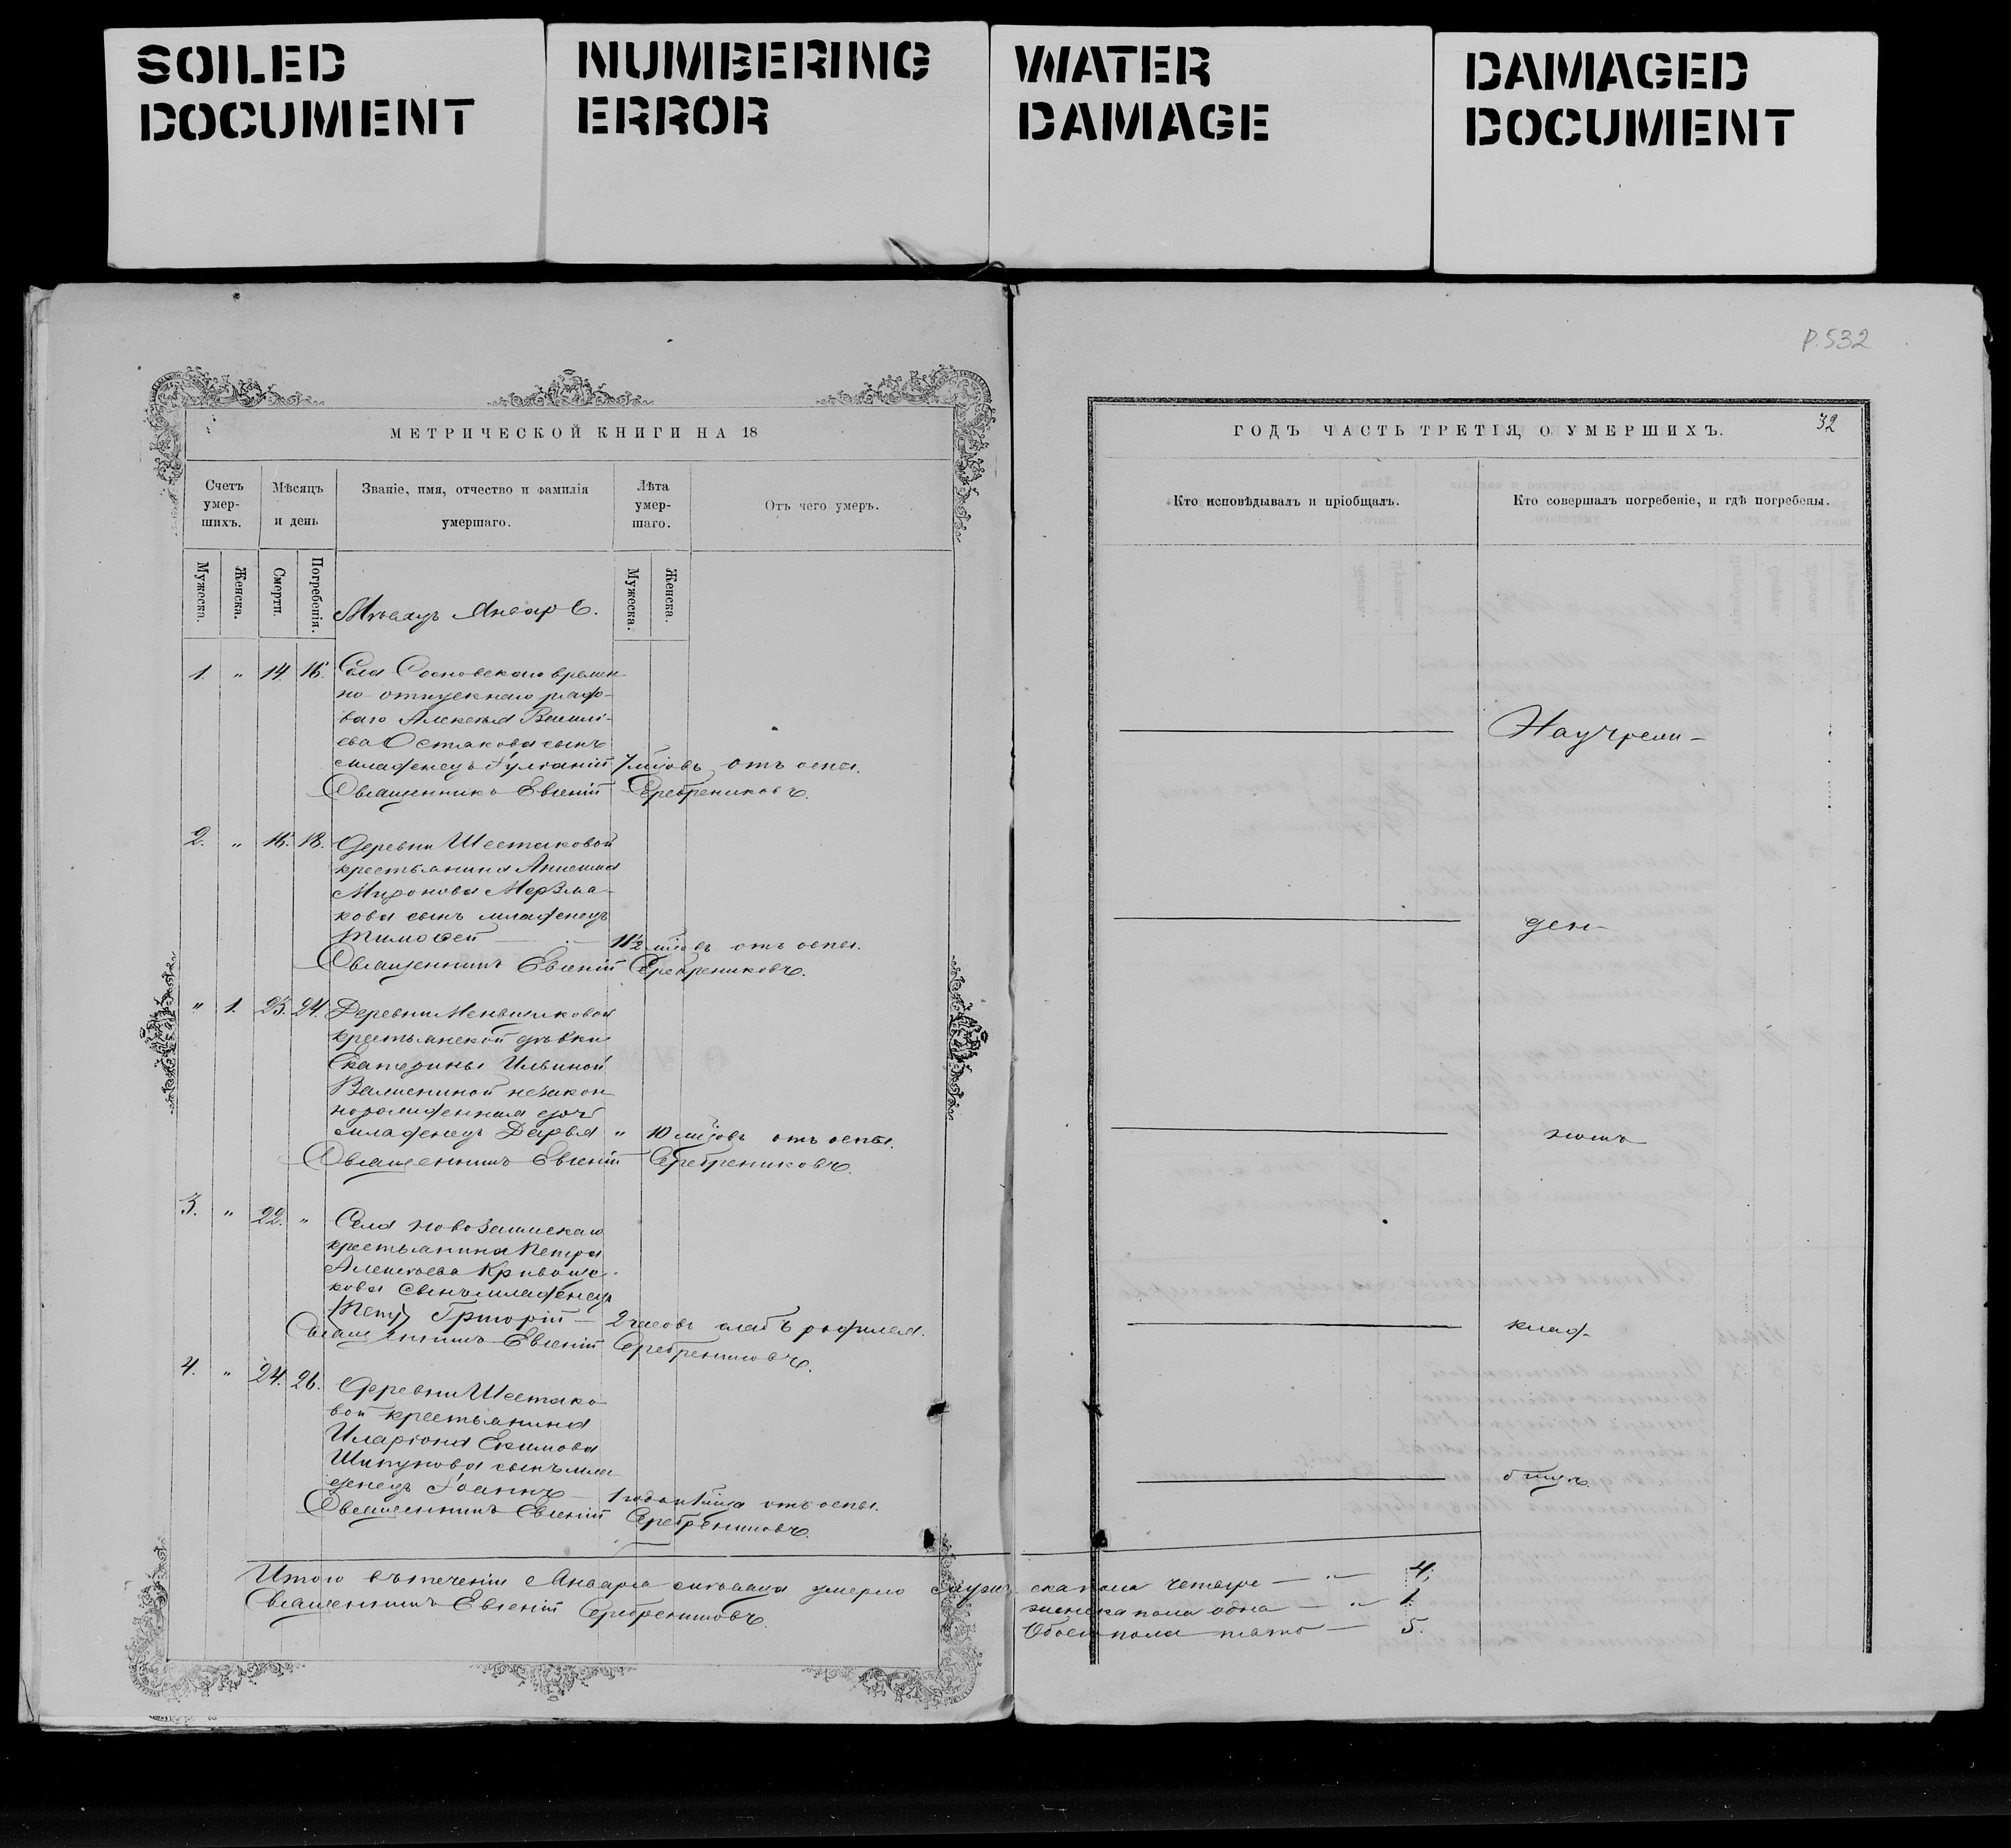 SOILED
DOCUMENT
NUMBERING
ERROR
WATER
DAMAGE
DAMAGED
DOCUMENT
Р. 532
МЕТРИЧЕСКОЙ КНИГИ НА 18
Счетъ умер-шихъ.
Мѣсяцъ и день
Званіе, имя, отчество и фамилія умершаго.
Лѣта умер-шаго.
Отъ чего умеръ.
Мужеска.
Женска.
Смерти.
Погребенія.
Мѣсяцъ Январь.
Мужеска.
Женска.
1. " 14. 16. Села Сосновскаго времен
но-отпускнаго рядо-
ваго Алексѣя Василі-
ева Остякова сынъ
младенецъ Іуліаній 7 м҃цовъ отъ оспы.
Священникъ Евгеній Серебрениковъ.
2. " 16. 18. Деревни Шестаковой
крестьянина Анисима
Миронова Мерзля-
кова сынъ младенецъ
Тимоѳей 1 1/2 м҃цовъ отъ оспы.
Священникъ Евгеній Серебрениковъ.
" 1. 23. 24. Деревни Меньщиковой
крестьянской дѣвки
Екатерины Ильиной
незакон-
норожденная дочь
младенецъ Дарья " 10 м҃цовъ отъ оспы.
Священникъ Евгеній Серебрениковъ.
3. " 22. " Села Новозаимскаго
крестьянина Петра
Алексѣева Кривоще-
кова сынъ младенецъ
Григорій 2 часовъ слабъ родился.
Священникъ Евгеній Серебрениковъ.
4. " 24. 26. Деревни Шестако-
вой крестьянина
Иларіона Екимова
Шипунова сынъ мла-
денецъ Іоаннъ 1 года и 1 м҃ца отъ оспы.
Священникъ Евгеній Серебрениковъ.
Итого въ теченіи Января мѣсяца умерло мужескаго пола четыре 4,
Священникъ Евгеній Серебрениковъ. женска пола одна 1.
Обоего пола пять 5.
ГОДЪ ЧАСТЬ ТРЕТІЯ, О УМЕРШИХЪ.
32
Кто исповѣдывалъ и пріобщалъ.
Кто совершалъ погребеніе, и гдѣ погребены.
На учреж-
ден-
номъ
клад-
бищѣ